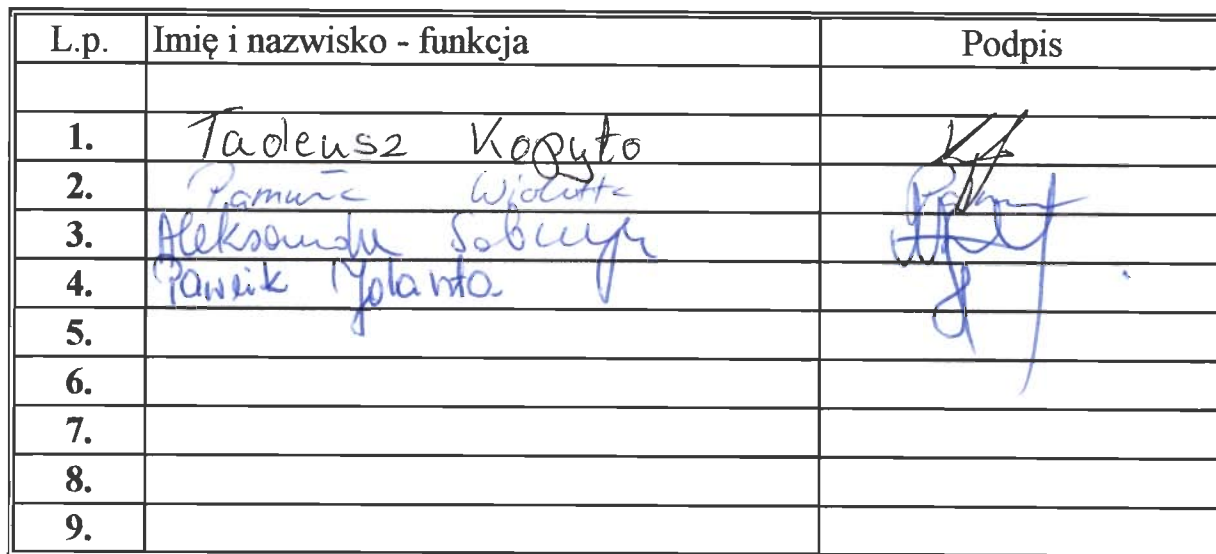 L.p. Imię i nazwisko - funkcja Podpis
1. Tadeusz Kopyto
2. Wioletta
3. Aleksandra
4. Pawlik Jolanta
5.
6.
7.
8.
9.